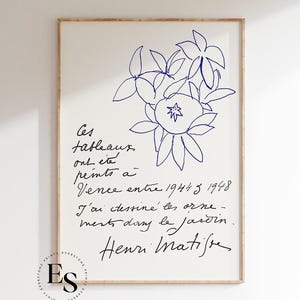 Ces
tableaux
ont été
peints à
Vence entre 1944 & 1948
J'ai dessiné les orne-
ments dans le jardin.
Henri Matisse
ES